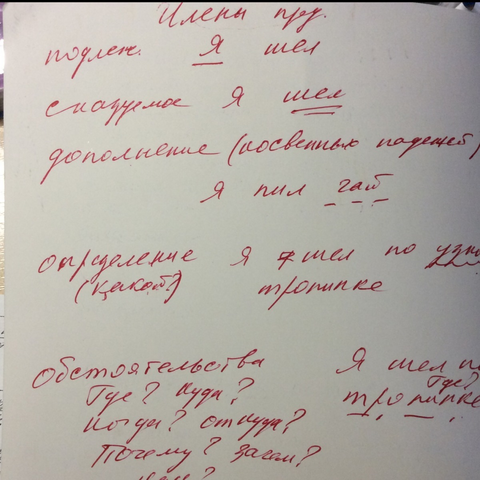 Члены пред.
подлеж. Я шел
сказуемое Я шел
дополнение (косвенных падежей)
Я пил чай
определение Я шел по узк
(какой?) тропинке
обстоятельства Я шел по
Где? Куда? Где?
тропинке
Когда? откуда?
Почему? Зачем?
Как?